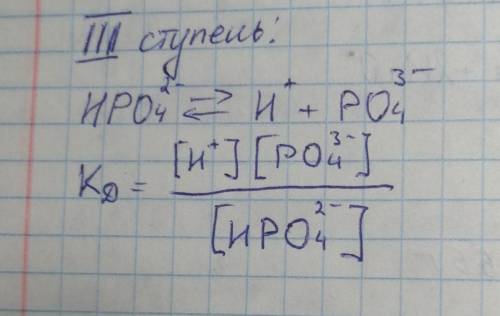 III ступень:
HPO₄²⁻ ⇄ H⁺ + PO₄³⁻
K_D = [H⁺][PO₄³⁻] / [HPO₄²⁻]